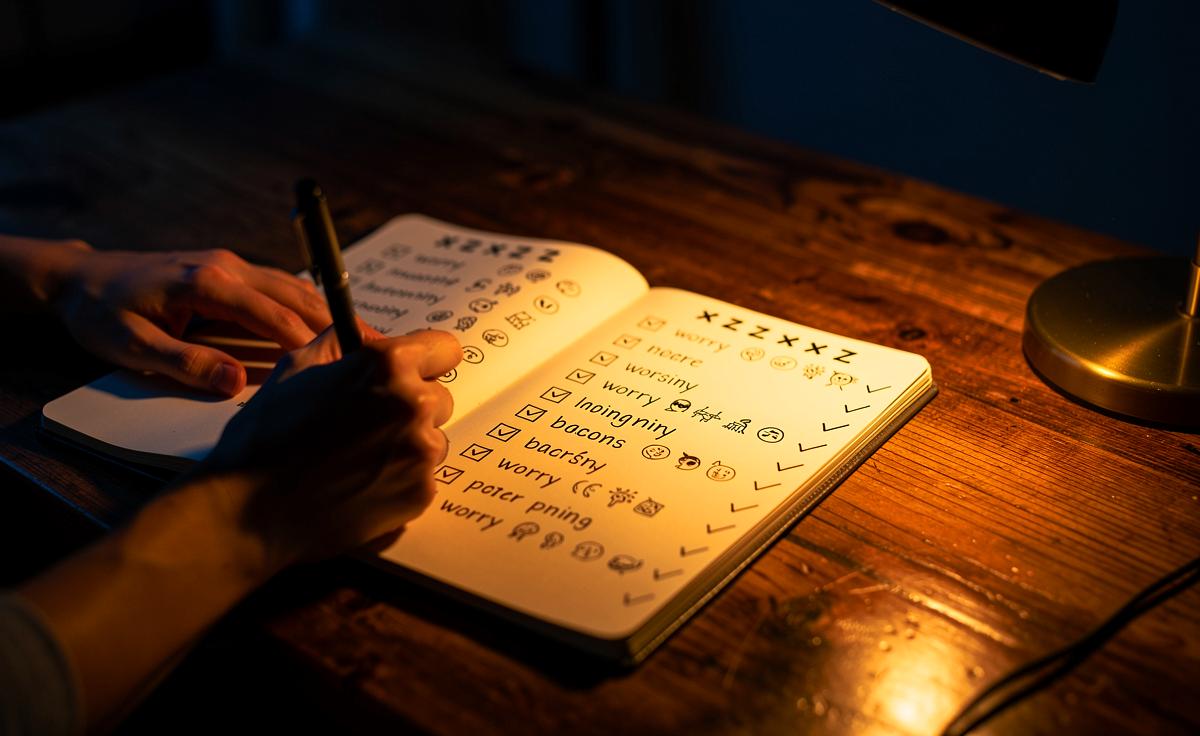 XZXZZ
worry
XZZXXZ
worry
nocre
worsiny
worry
lnoingniry
bacons
bacrśny
worry
poter pning
worry